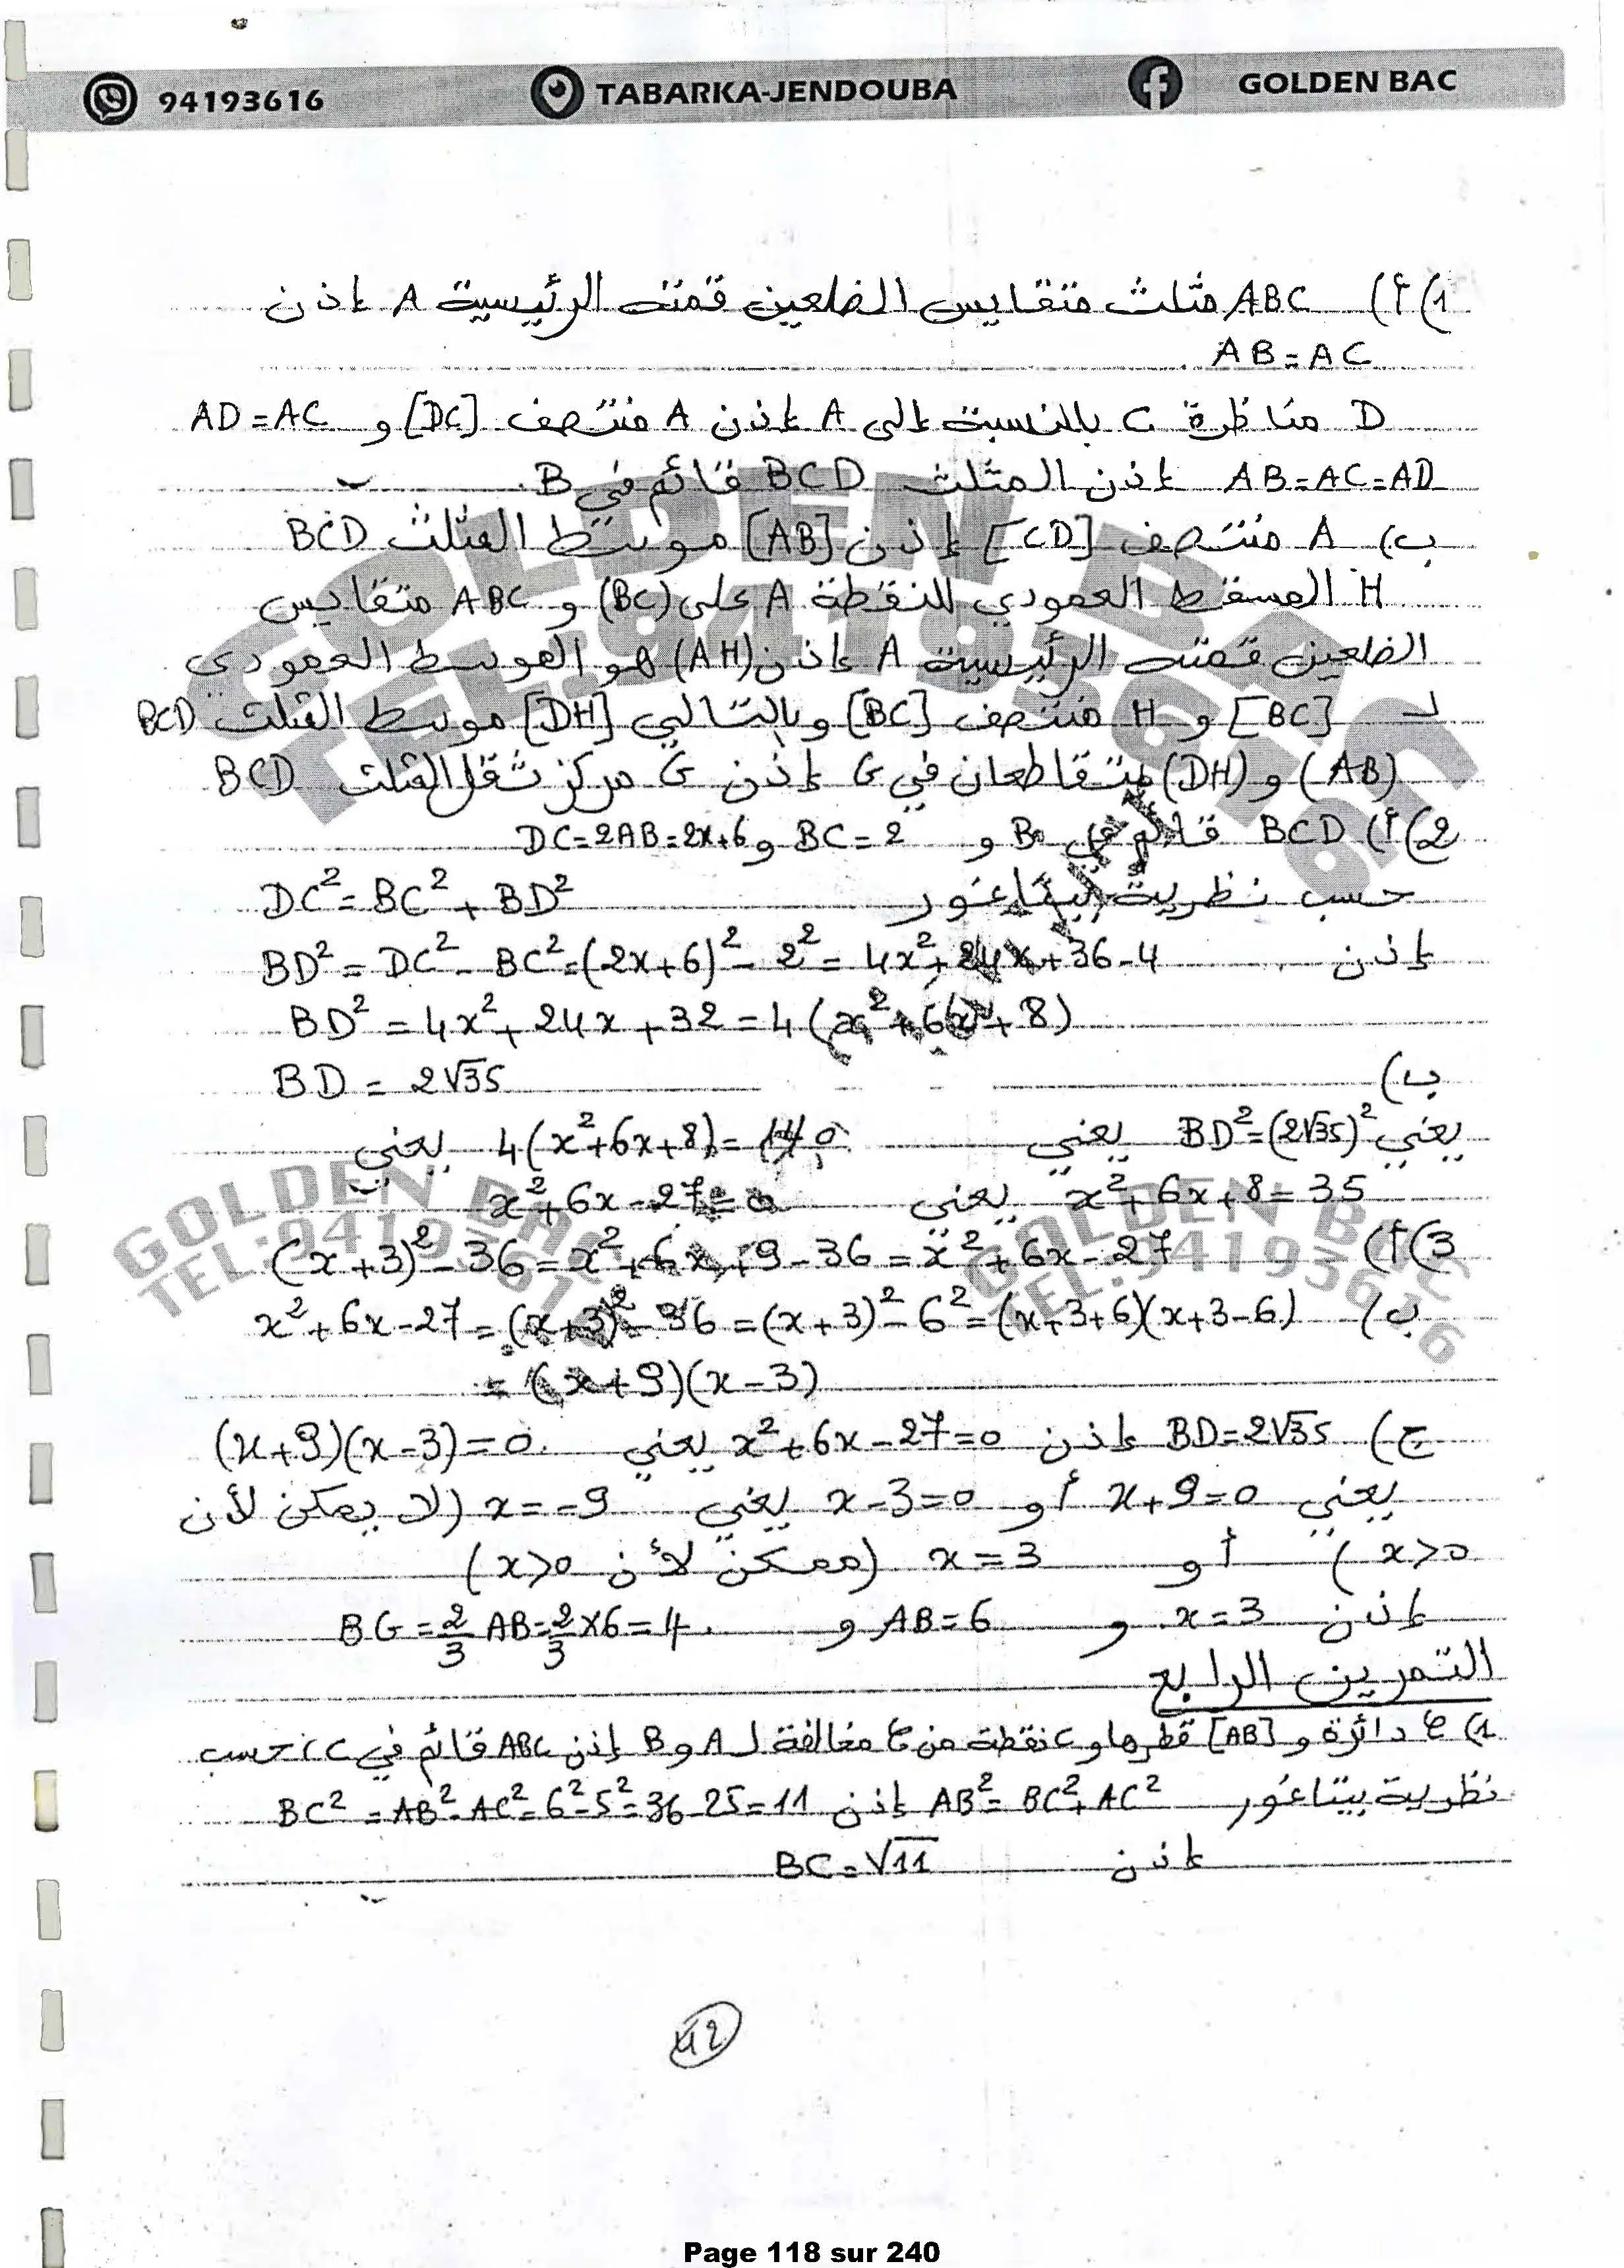 94193616 TABARKA-JENDOUBA GOLDEN BAC
1) أ) ABC مثلث متقايس الضلعين قمته الرئيسية A إذن
AB = AC
D مناظرة C بالنسبة إلى A إذن A منتصف [DC] و AD = AC
AB = AC = AD إذن المثلث BCD قائم في B.
ب) A منتصف [CD] إذن [AB] موسط المثلث BCD
H المسقط العمودي للنقطة A على (BC) و ABC متقايس
الضلعين قمته الرئيسية A إذن (AH) هو الموسط العمودي
لـ [BC] و H منتصف [BC] وبالتالي [DH] موسط المثلث BCD
(AB) و (DH) متقاطعان في G إذن G مركز ثقل المثلث BCD
2) أ) BCD قائم في B و BC = 2 و DC = 2AB = 2x+6
حسب نظرية بيتاغور DC² = BC² + BD²
إذن BD² = DC² - BC² = (2x+6)² - 2² = 4x² + 24x + 36 - 4
BD² = 4x² + 24x + 32 = 4(x² + 6x + 8)
ب) BD = 2√35
يعني BD² = (2√35)² يعني 4(x²+6x+8) = 140 يعني
x² + 6x + 8 = 35 يعني x² + 6x - 27 = 0
3) أ) (x+3)² - 36 = x² + 6x + 9 - 36 = x² + 6x - 27
ب) x² + 6x - 27 = (x+3)² - 36 = (x+3)² - 6² = (x+3+6)(x+3-6)
= (x+9)(x-3)
ج) BD = 2√35 إذن x² + 6x - 27 = 0 يعني (x+9)(x-3) = 0
يعني x+9 = 0 أو x-3 = 0 يعني x = -9 (لا يمكن لأن
x>0) أو x = 3 (ممكن لأن x>0)
إذن x = 3 و AB = 6 و BG = 2/3 AB = 2/3 × 6 = 4
التمرين الرابع
1) ℰ دائرة و [AB] قطرها و C نقطة من ℰ مخالفة لـ A و B إذن ABC قائم في C، حسب
نظرية بيتاغور AB² = BC² + AC² إذن BC² = AB² - AC² = 6² - 5² = 36 - 25 = 11
إذن BC = √11
42
Page 118 sur 240
GOLDEN BAC
TEL:94193616
GOLDEN BAC
TEL:94193616
GOLDEN BAC
TEL:94193616